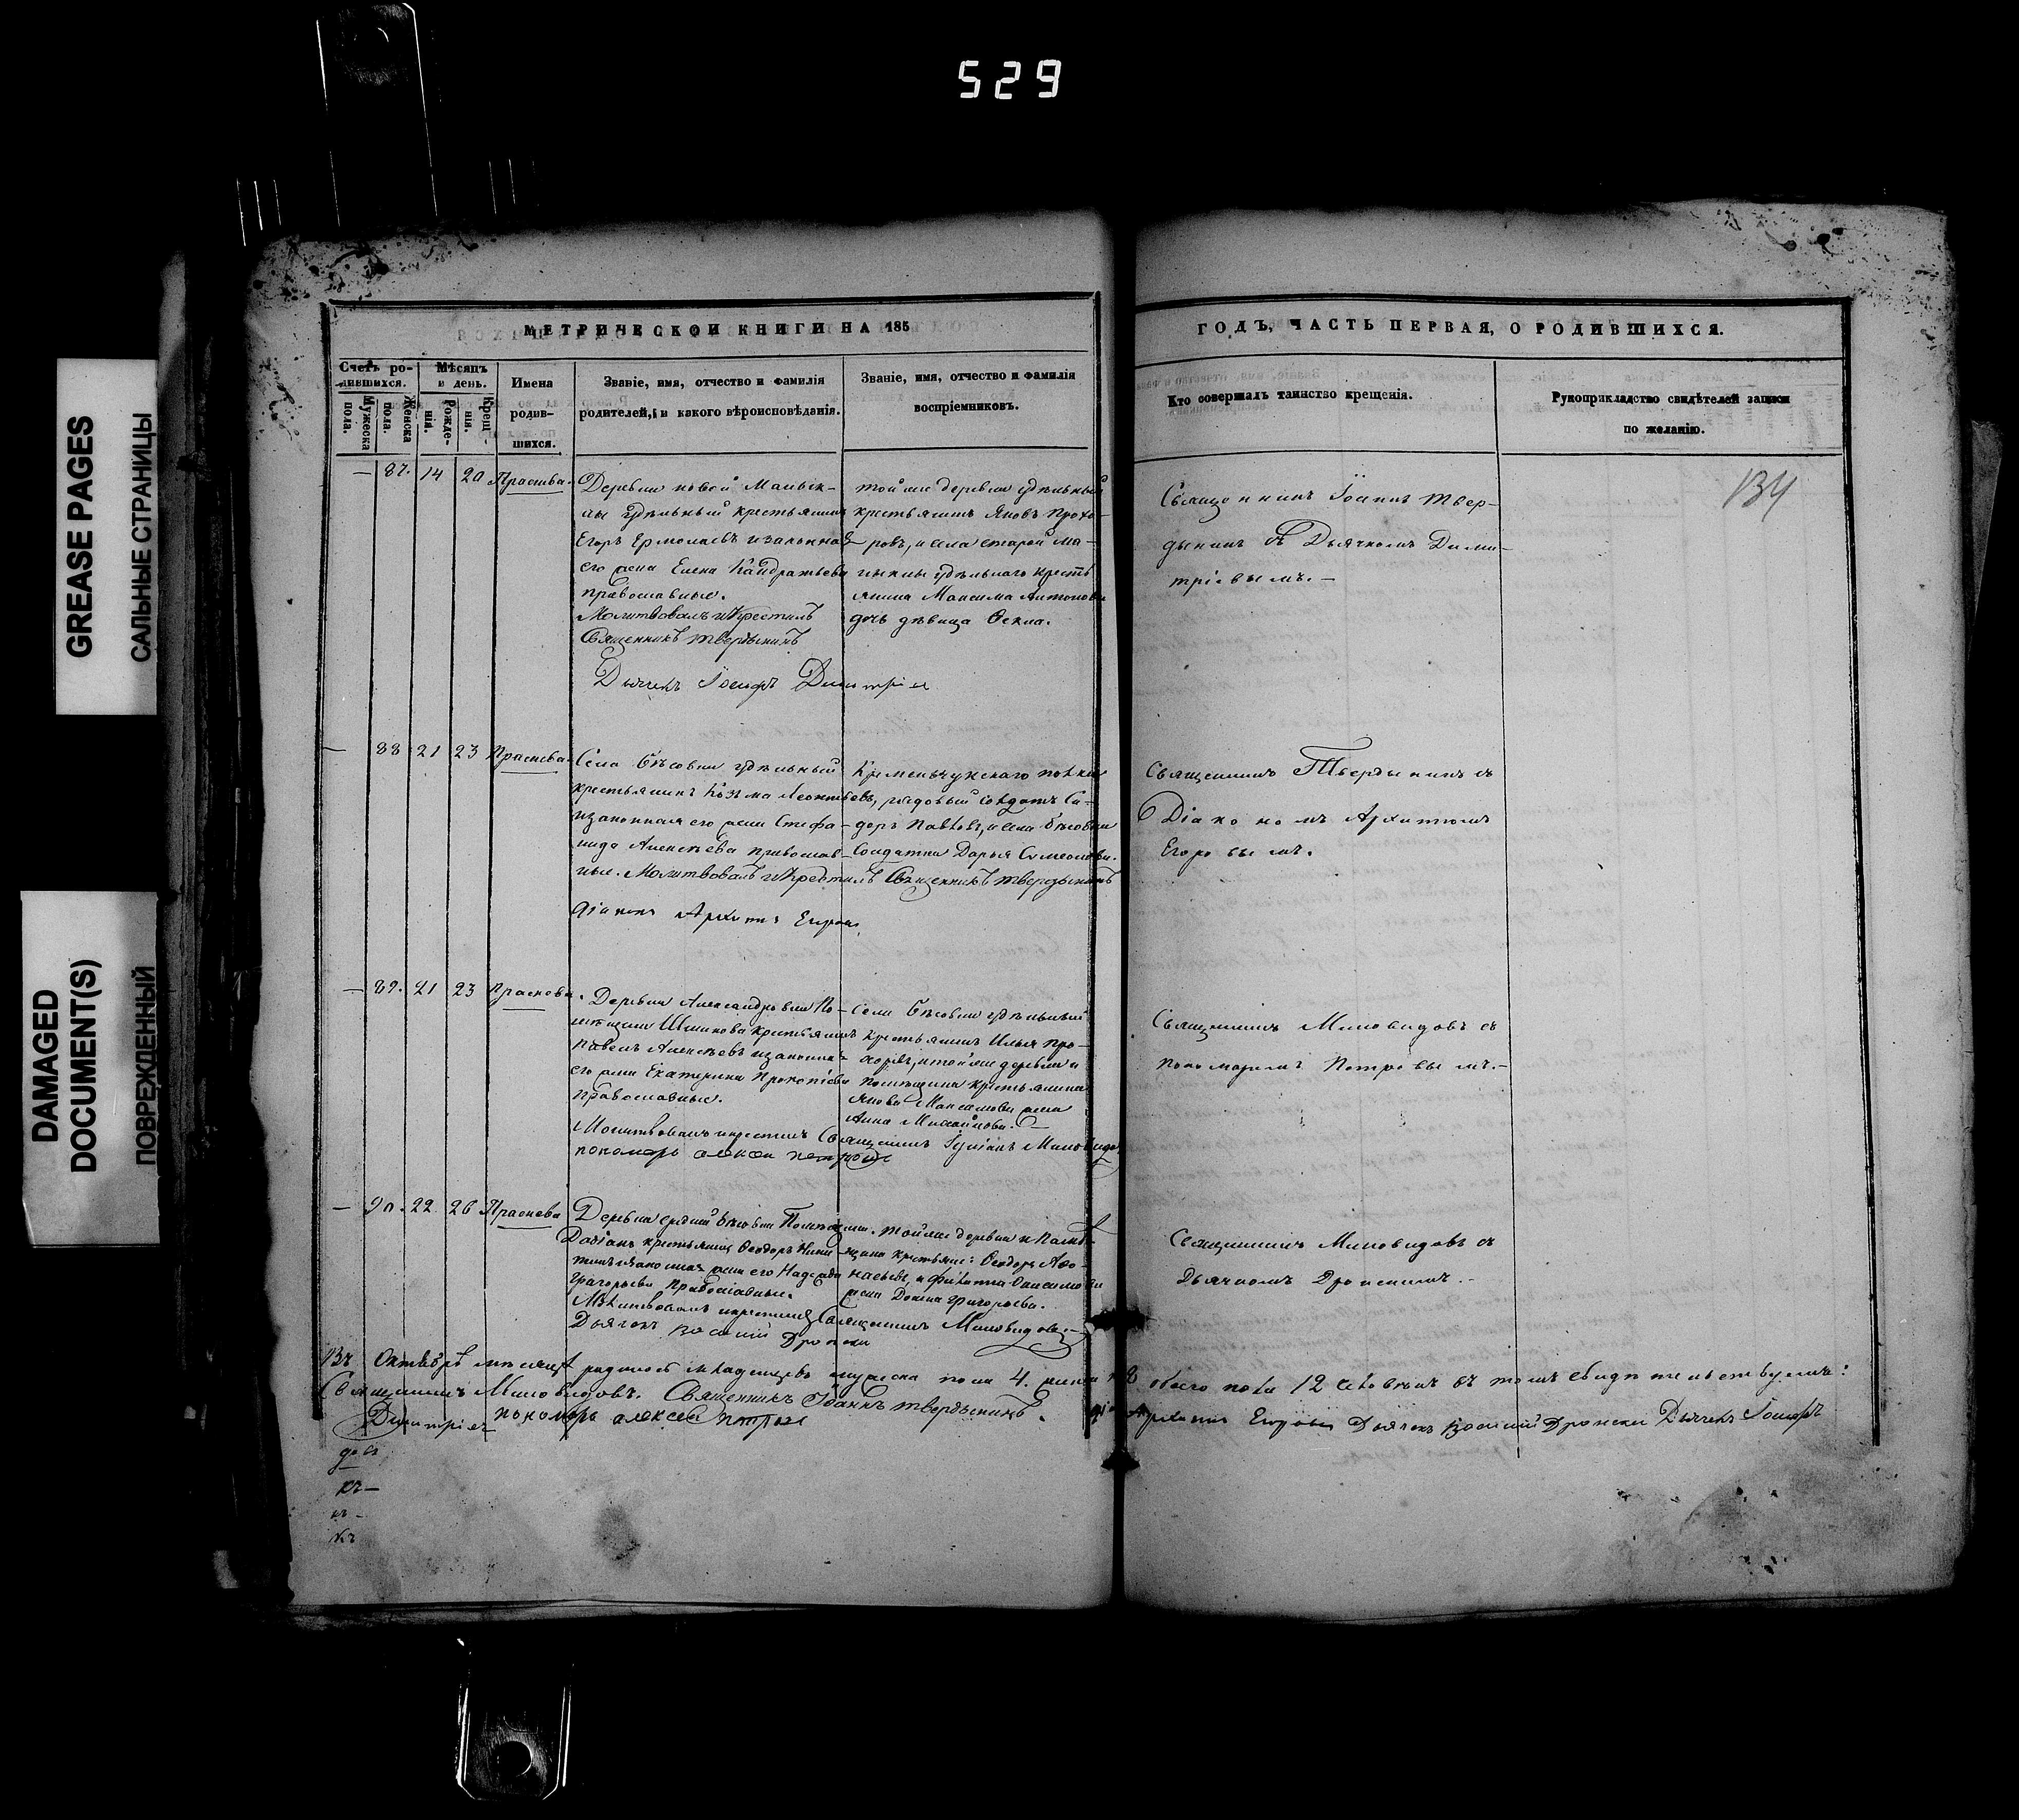 529
GREASE PAGES
САЛЬНЫЕ СТРАНИЦЫ
DAMAGED
DOCUMENT(S)
ПОВРЕЖДЕННЫЙ
МЕТРИЧЕСКОЙ КНИГИ НА 185
Счетъ ро-
дившихся.
Мужеска
пола.
Женска
пола.
Мѣсяцъ
и день.
Рожде-
нія.
Крещ-
нія.
Имена
родив-
шихся.
Званіе, имя, отчество и фамилія
родителей, и какого вѣроисповѣданія.
Званіе, имя, отчество и фамилія
воспріемниковъ.
ГОДЪ, ЧАСТЬ ПЕРВАЯ, О РОДИВШИХСЯ.
Кто совершалъ таинство крещенія.
Рукоприкладство свидѣтелей записи
по желанію.
134
— 87. 14 20 Праскева.
Деревни новой
удѣльный крестьянинъ
Егоръ Ермолаевъ и законная
его жена Елена Кандратьева
православные.
Молитвовалъ и Крестилъ
Священникъ Твердынинъ
Дьячекъ Іосифъ Димитріев
тойже деревни удѣльный
крестьянинъ Яковъ Прохо-
ровъ, и села старой Ма-
удѣльнаго кресть
янина Максима Антонова
дочь дѣвица Фекла.
Священникъ Іоаннъ Твер-
дынинъ съ Дьячкомъ Дими-
тріевымъ.—
— 88 21 23 Праскева.
Села Бѣсовки удѣльный
крестьянинъ Козьма Леонтьевъ,
и законная его жена Стефа-
нида Алексѣева православ-
ные. Молитвовалъ и Крестилъ Священникъ Твердынинъ
Діаконъ Архипъ Егоровъ
Кременчугскаго полка
рядовый солдатъ Си-
доръ Павловъ, и села Бѣсовки
Солдатка Дарья Симеонова.
Священникъ Твердынинъ съ
Діакономъ Архипомъ
Егоровымъ.
— 89. 21 23 Праскева.
Деревни Александровки По-
мѣщика крестьянинъ
Павелъ Алексѣевъ и законная
его жена Екатерина Прокопіева
православные.
Молитвовалъ и крестилъ Священникъ Миловидовъ
пономарь алексеи петровъ
Села Бѣсовки удѣльный
крестьянинъ Илья Про-
хоровъ, и тойже деревни и
помѣщика крестьянина
Якова Максимова жена
Анна Михайлова.
Священникъ Миловидовъ съ
пономаремъ Петровымъ.—
— 90. 22. 26 Праскева
Деревни средней Бѣсовки Помѣщика
крестьянинъ Феодоръ Ники-
тинъ и законная жена его Надежда
Григорьева Православные.
Молитвовалъ и крестилъ Священникъ Миловидовъ
Дьячекъ Василий
тойже деревни и Помѣ-
щика крестьяне: Феодоръ Афо-
насьевъ, и Филиппа
жена Домна Григорьева.
Священникъ Миловидовъ съ
Дьячкомъ
Въ Октябрѣ мѣсяцѣ родилось младенцевъ мужеска пола 4. женска 8 обоего пола 12 человѣкъ въ томъ свидѣтельствуемъ:
Священникъ Миловидовъ. Священникъ Іоаннъ Твердынинъ. Архипъ Егоровъ Дьячекъ Василий Дьячекъ Іосифъ
Димитріевъ пономарь алексеи петровъ